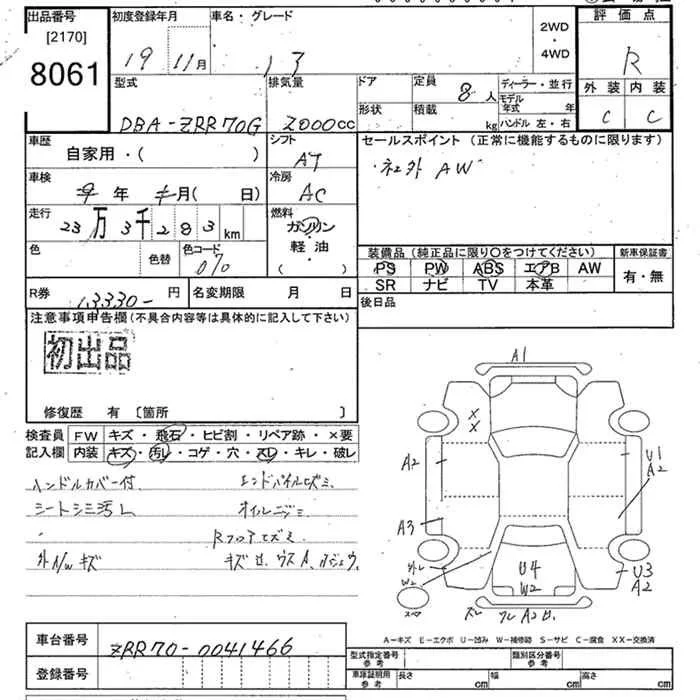 出品番号
[2170]
8061
初度登録年月
19年11月
車名・グレード
2WD
・
4WD
評価点
R
外装 内装
C C
型式
DBA-ZRR70G
排気量
2000cc
ドア
形状
定員 8人
積載 kg
ディーラー・並行
モデル年式 年
ハンドル 左・右
車歴
自家用・( )
シフト
AT
セールスポイント (正常に機能するものに限ります)
・社外 AW
車検
年 月( 日)
冷房
AC
走行
23万3千283km
燃料
ガソリン
軽・油
・( )
色
色替
色コード
装備品 (純正品に限り〇をつけてください)
PS PW ABS エアB AW
SR ナビ TV 本革
新車保証書
有・無
R券
13330- 円
名変期限 月 日
後日品
注意事項申告欄 (不具合内容等は具体的に記入して下さい)
初出品
修復歴 有 〔箇所 〕
検査員
記入欄
FW キズ・飛石・ヒビ割・リペア跡・×要
内装 キズ・汚レ・コゲ・穴・スレ・キレ・破レ
ハンドルカバー付
シートシミ汚レ
外A/Wキズ
オイルニジミ
A1
X
X
A2
A3
U1
A2
U4
W2
W2
U3
A2
A-キズ E-エクボ U-凹み W-補修跡 S-サビ C-腐食 XX-交換済
車台番号
ZRR70-0041466
登録番号
型式指定番号
参考
類別区分番号
参考
車庫証明用
参考
長さ cm
幅 cm
高さ cm